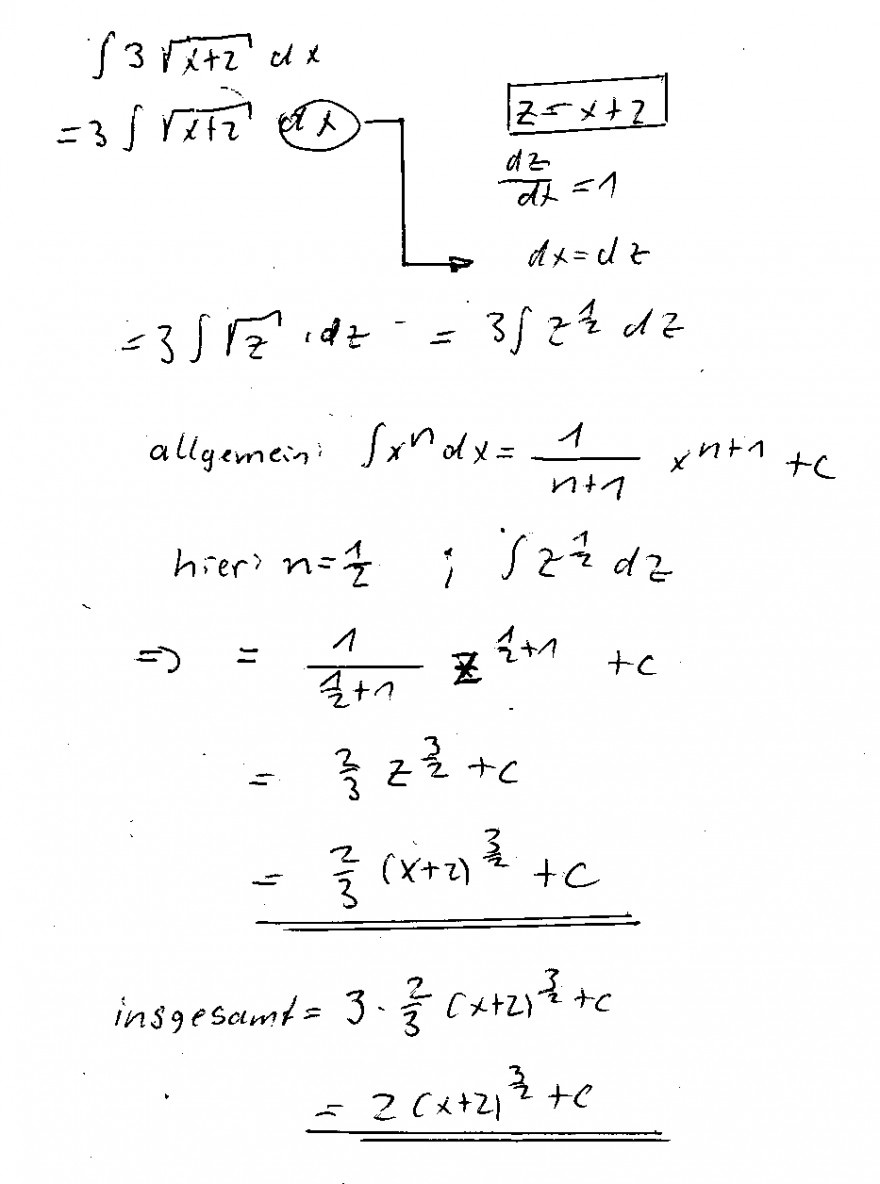 ∫ 3 √(x+2) dx
= 3 ∫ √(x+2) dx
z = x+2
dz/dx = 1
dx = dz
= 3 ∫ √z · dz = 3 ∫ z^(1/2) dz
allgemein: ∫ x^n dx = 1/(n+1) x^(n+1) + c
hier: n = 1/2 ; ∫ z^(1/2) dz
=> = 1/(1/2+1) z^(1/2+1) + c
= 2/3 z^(3/2) + c
= 2/3 (x+2)^(3/2) + c
insgesamt = 3 · 2/3 (x+2)^(3/2) + c
= 2 (x+2)^(3/2) + c